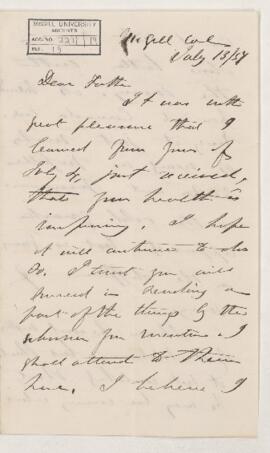 McGILL UNIVERSITY
ARCHIVES
ACC. NO.
REF.
McGill Col.
July 13/57
Dear Father
It was with
great pleasure that I
learned from yours of
July 4, just received,
that your health is
improving. I hope
it will continue to do
so. I trust you will
succeed in sending a
part of the things by the
schooner you mention. I
shall attend to them
here. I believe I